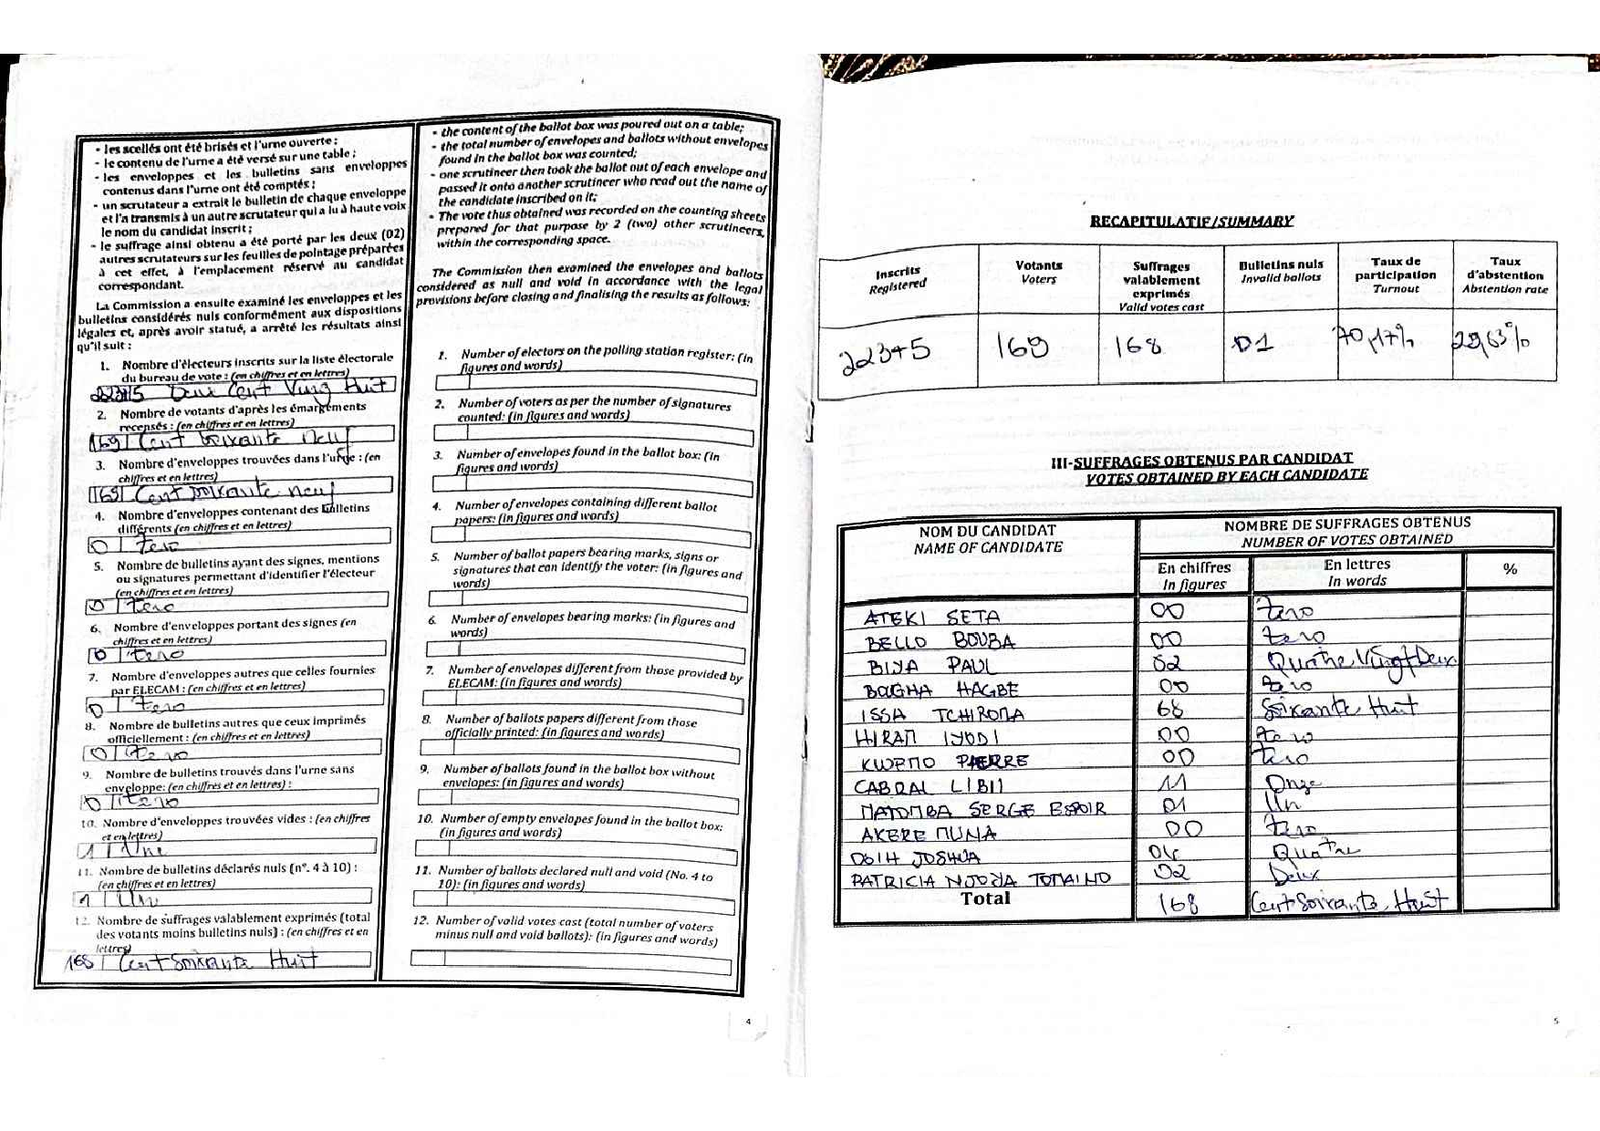 - les scellés ont été brisés et l'urne ouverte ;
- le contenu de l'urne a été versé sur une table ;
- les enveloppes et les bulletins sans enveloppes
contenus dans l'urne ont été comptés ;
- un scrutateur a extrait le bulletin de chaque enveloppe
et l'a transmis à un autre scrutateur qui a lu à haute voix
le nom du candidat inscrit ;
- le suffrage ainsi obtenu a été porté par les deux (02)
autres scrutateurs sur les feuilles de pointage préparées
à cet effet, à l'emplacement réservé au candidat
correspondant.
La Commission a ensuite examiné les enveloppes et les
bulletins considérés nuls conformément aux dispositions
légales et, après avoir statué, a arrêté les résultats ainsi
qu'il suit :
1. Nombre d'électeurs inscrits sur la liste électorale
du bureau de vote : (en chiffres et en lettres)
Deux Cent Ving Huit
2. Nombre de votants d'après les émargements
recensés : (en chiffres et en lettres)
169 Cent Soixante neuf
3. Nombre d'enveloppes trouvées dans l'urne : (en
chiffres et en lettres)
169 Cent soixante neuf
4. Nombre d'enveloppes contenant des bulletins
différents (en chiffres et en lettres)
0 Zero
5. Nombre de bulletins ayant des signes, mentions
ou signatures permettant d'identifier l'électeur
(en chiffres et en lettres)
0 Zero
6. Nombre d'enveloppes portant des signes (en
chiffres et en lettres)
0 Zero
7. Nombre d'enveloppes autres que celles fournies
par ELECAM : (en chiffres et en lettres)
0 Zero
8. Nombre de bulletins autres que ceux imprimés
officiellement : (en chiffres et en lettres)
0 Zero
9. Nombre de bulletins trouvés dans l'urne sans
enveloppe: (en chiffres et en lettres) :
0 Zero
10. Nombre d'enveloppes trouvées vides : (en chiffres
et en lettres)
1 Une
11. Nombre de bulletins déclarés nuls (n°. 4 à 10) :
(en chiffres et en lettres)
1 Un
12. Nombre de suffrages valablement exprimés (total
des votants moins bulletins nuls) : (en chiffres et en
lettres)
168 Cent Soixante Huit
- the content of the ballot box was poured out on a table;
- the total number of envelopes and ballots without envelopes
found in the ballot box was counted;
- one scrutineer then took the ballot out of each envelope and
passed it onto another scrutineer who read out the name of
the candidate inscribed on it;
- The vote thus obtained was recorded on the counting sheets
prepared for that purpose by 2 (two) other scrutineers,
within the corresponding space.
The Commission then examined the envelopes and ballots
considered as null and void in accordance with the legal
provisions before closing and finalising the results as follows:
1. Number of electors on the polling station register: (in
figures and words)
2. Number of voters as per the number of signatures
counted: (in figures and words)
3. Number of envelopes found in the ballot box: (in
figures and words)
4. Number of envelopes containing different ballot
papers: (in figures and words)
5. Number of ballot papers bearing marks, signs or
signatures that can identify the voter: (in figures and
words)
6. Number of envelopes bearing marks: (in figures and
words)
7. Number of envelopes different from those provided by
ELECAM: (in figures and words)
8. Number of ballots papers different from those
officially printed: (in figures and words)
9. Number of ballots found in the ballot box without
envelopes: (in figures and words)
10. Number of empty envelopes found in the ballot box:
(in figures and words)
11. Number of ballots declared null and void (No. 4 to
10): (in figures and words)
12. Number of valid votes cast (total number of voters
minus null and void ballots): (in figures and words)
4
RECAPITULATIF/SUMMARY
Inscrits Registered Votants Voters Suffrages valablement exprimés Valid votes cast Bulletins nuls Invalid ballots Taux de participation Turnout Taux d'abstention Abstention rate
169 168 01 70,17% 29,83%
III-SUFFRAGES OBTENUS PAR CANDIDAT
VOTES OBTAINED BY EACH CANDIDATE
NOM DU CANDIDAT NOMBRE DE SUFFRAGES OBTENUS
NAME OF CANDIDATE NUMBER OF VOTES OBTAINED
En chiffres En lettres %
In figures In words
ATEKI SETA 00 Zero
BELLO BOUBA 00 Zero
BIYA PAUL 82 Quatre Vingt Deux
BOUGHA HAGBE 00 Zero
ISSA TCHIROMA 68 Soixante Huit
HIRAM IYODI 00 Zero
KWEMO PIERRE 00 Zero
CABRAL LIBII 11 Onze
MATOMBA SERGE ESPOIR 01 Un
AKERE MUNA 00 Zero
OSIH JOSHUA 04 Quatre
PATRICIA NJOYA TOMAINO 02 Deux
Total 168 Cent Soixante Huit
5